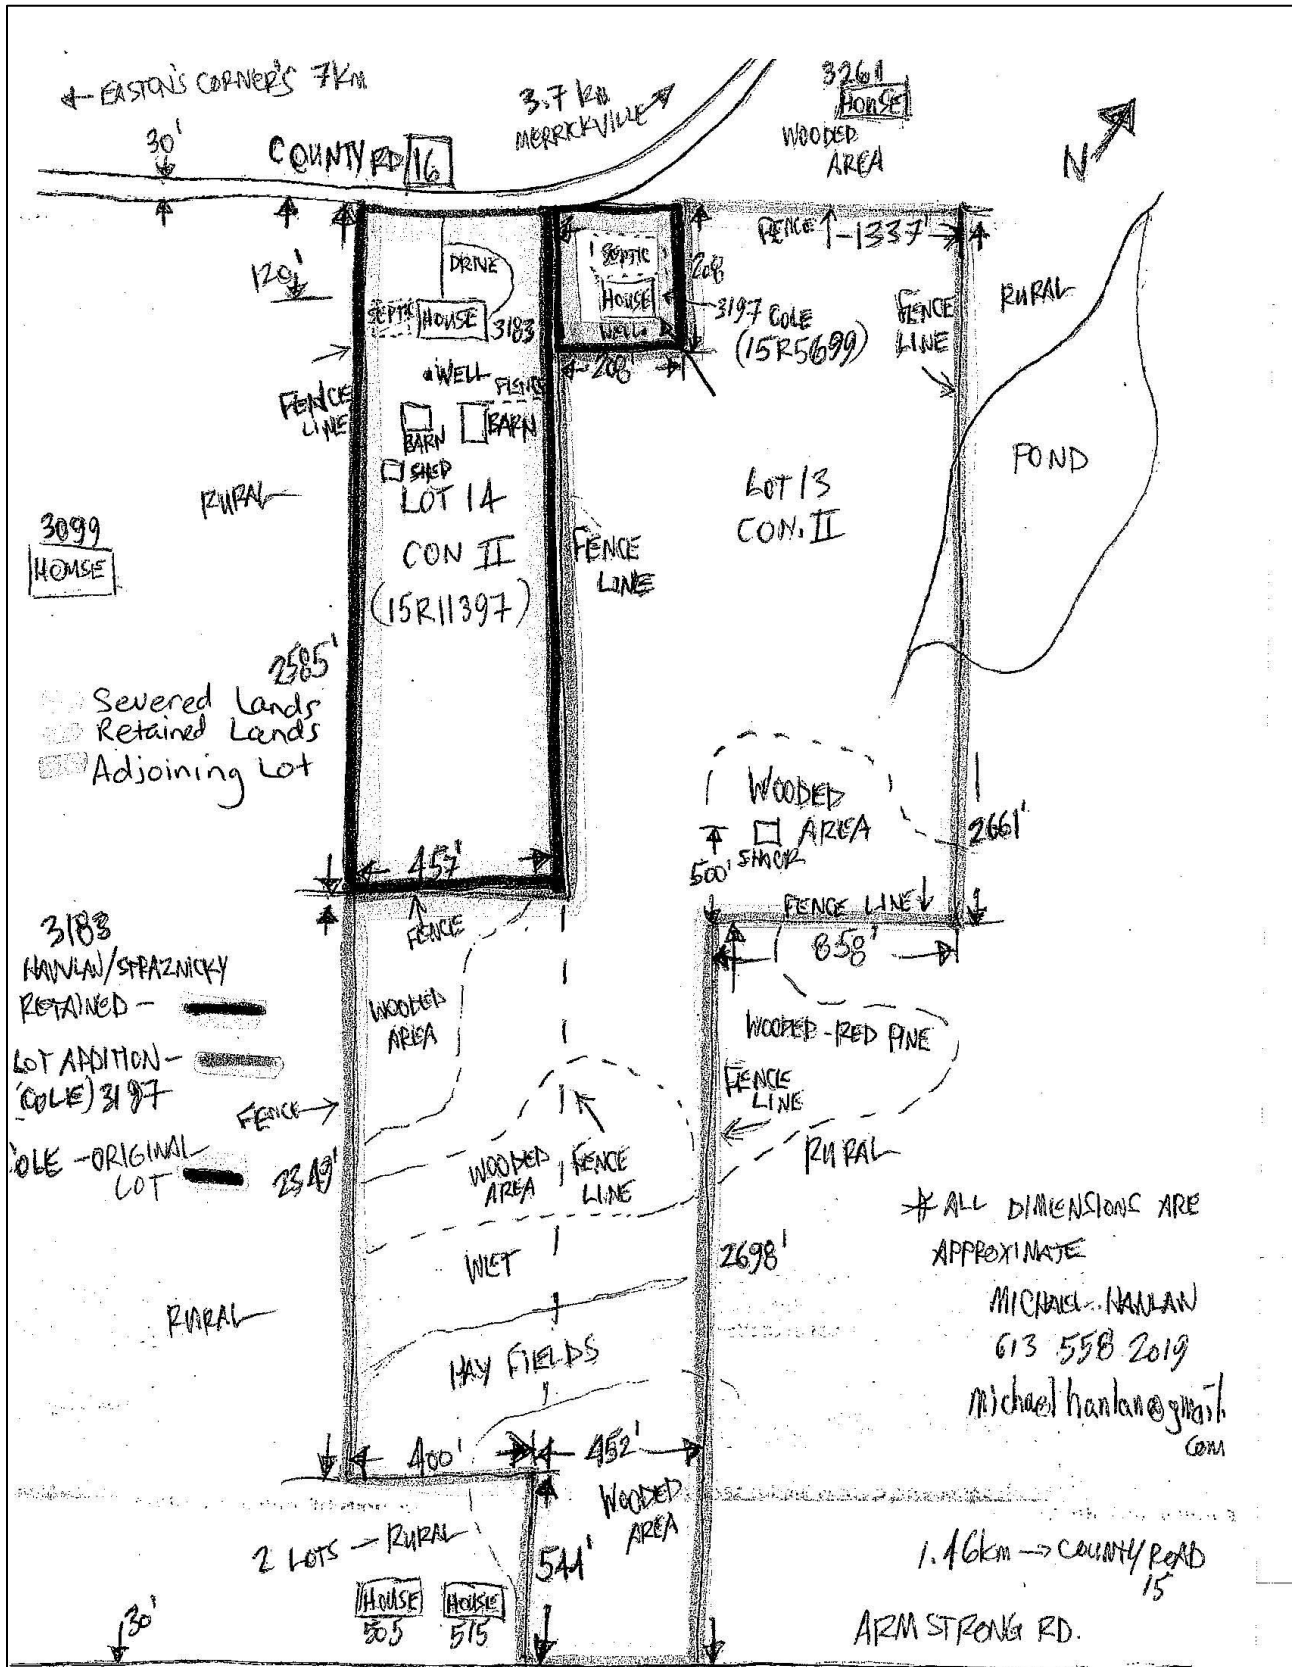 ← EASTON'S CORNER'S 7KM
3.7 KM
MERRICKVILLE
3261
HOUSE
WOODED
AREA
N
30'
COUNTY RD 16
FENCE
1337'
120'
DRIVE
SEPTIC
HOUSE
3183
SEPTIC
HOUSE
WELL
208
208'
3197 COLE
(15R5699)
FENCE
LINE
RURAL
POND
FENCE
LINE
WELL
FENCE
BARN
BARN
SHED
LOT 14
CON II
(15R11397)
RURAL
3099
HOUSE
FENCE
LINE
LOT 13
CON. II
2585'
Severed Lands
Retained Lands
Adjoining Lot
WOODED
AREA
SHACK
500'
2661'
457'
FENCE
FENCE LINE
858'
3183
HANLAN/STRAZNICKY
RETAINED -
LOT ADDITION -
(COLE) 3197
OLE - ORIGINAL
LOT
WOODED
AREA
FENCE →
2349'
WOODED - RED PINE
FENCE
LINE
RURAL
WOODED
AREA
FENCE
LINE
WET
2698'
* ALL DIMENSIONS ARE
APPROXIMATE
MICHAEL HANLAN
613 558 2019
michael hanlan@gmail.
com
RURAL
HAY FIELDS
400'
452'
WOODED
AREA
2 LOTS - RURAL
544'
HOUSE
505
HOUSE
515
30'
1.46km → COUNTY ROAD
15
ARMSTRONG RD.